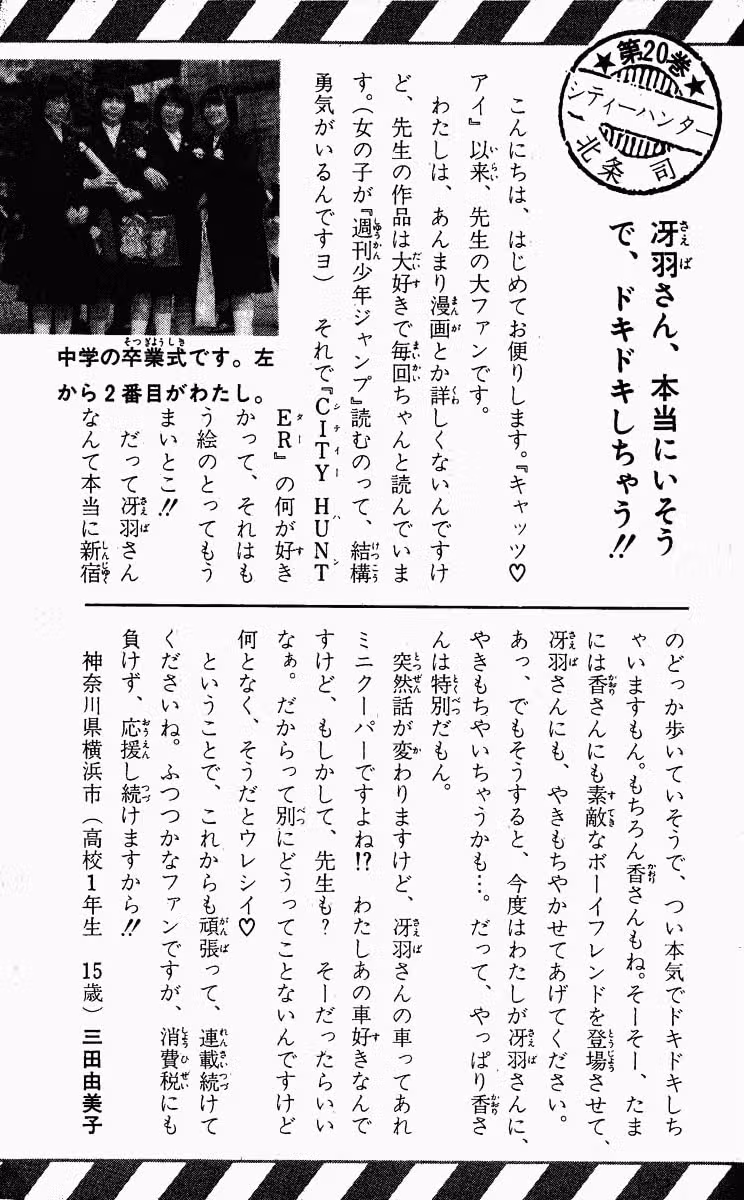 ★第20巻★
シティーハンター
北条 司
冴羽さん、本当にいそう
で、ドキドキしちゃう!!
こんにちは、はじめてお便りします。『キャッツ♡
アイ』以来、先生の大ファンです。
わたしは、あんまり漫画とか詳しくないんですけ
ど、先生の作品は大好きで毎回ちゃんと読んでいま
す。(女の子が『週刊少年ジャンプ』読むのって、結構
勇気がいるんですヨ) それで『CITY HUNT
ER』の何が好き
かって、それはも
う絵のとってもう
まいとこ!!
だって冴羽さん
なんて本当に新宿
中学の卒業式です。左
から2番目がわたし。
のどっか歩いていそうで、つい本気でドキドキしち
ゃいますもん。もちろん香さんもね。そーそー、たま
には香さんにも素敵なボーイフレンドを登場させて、
冴羽さんにも、やきもちやかせてあげてください。
あっ、でもそうすると、今度はわたしが冴羽さんに、
やきもちやいちゃうかも…。だって、やっぱり香さ
んは特別だもん。
突然話が変わりますけど、冴羽さんの車ってあれ
ミニクーパーですよね!? わたしあの車好きなんで
すけど、もしかして、先生も? そーだったらいい
なぁ。だからって別にどうってことないんですけど
何となく、そうだとウレシイ♡
ということで、これからも頑張って、連載続けて
くださいね。ふつつかなファンですが、消費税にも
負けず、応援し続けますから!!
神奈川県横浜市(高校1年生 15歳)三田由美子